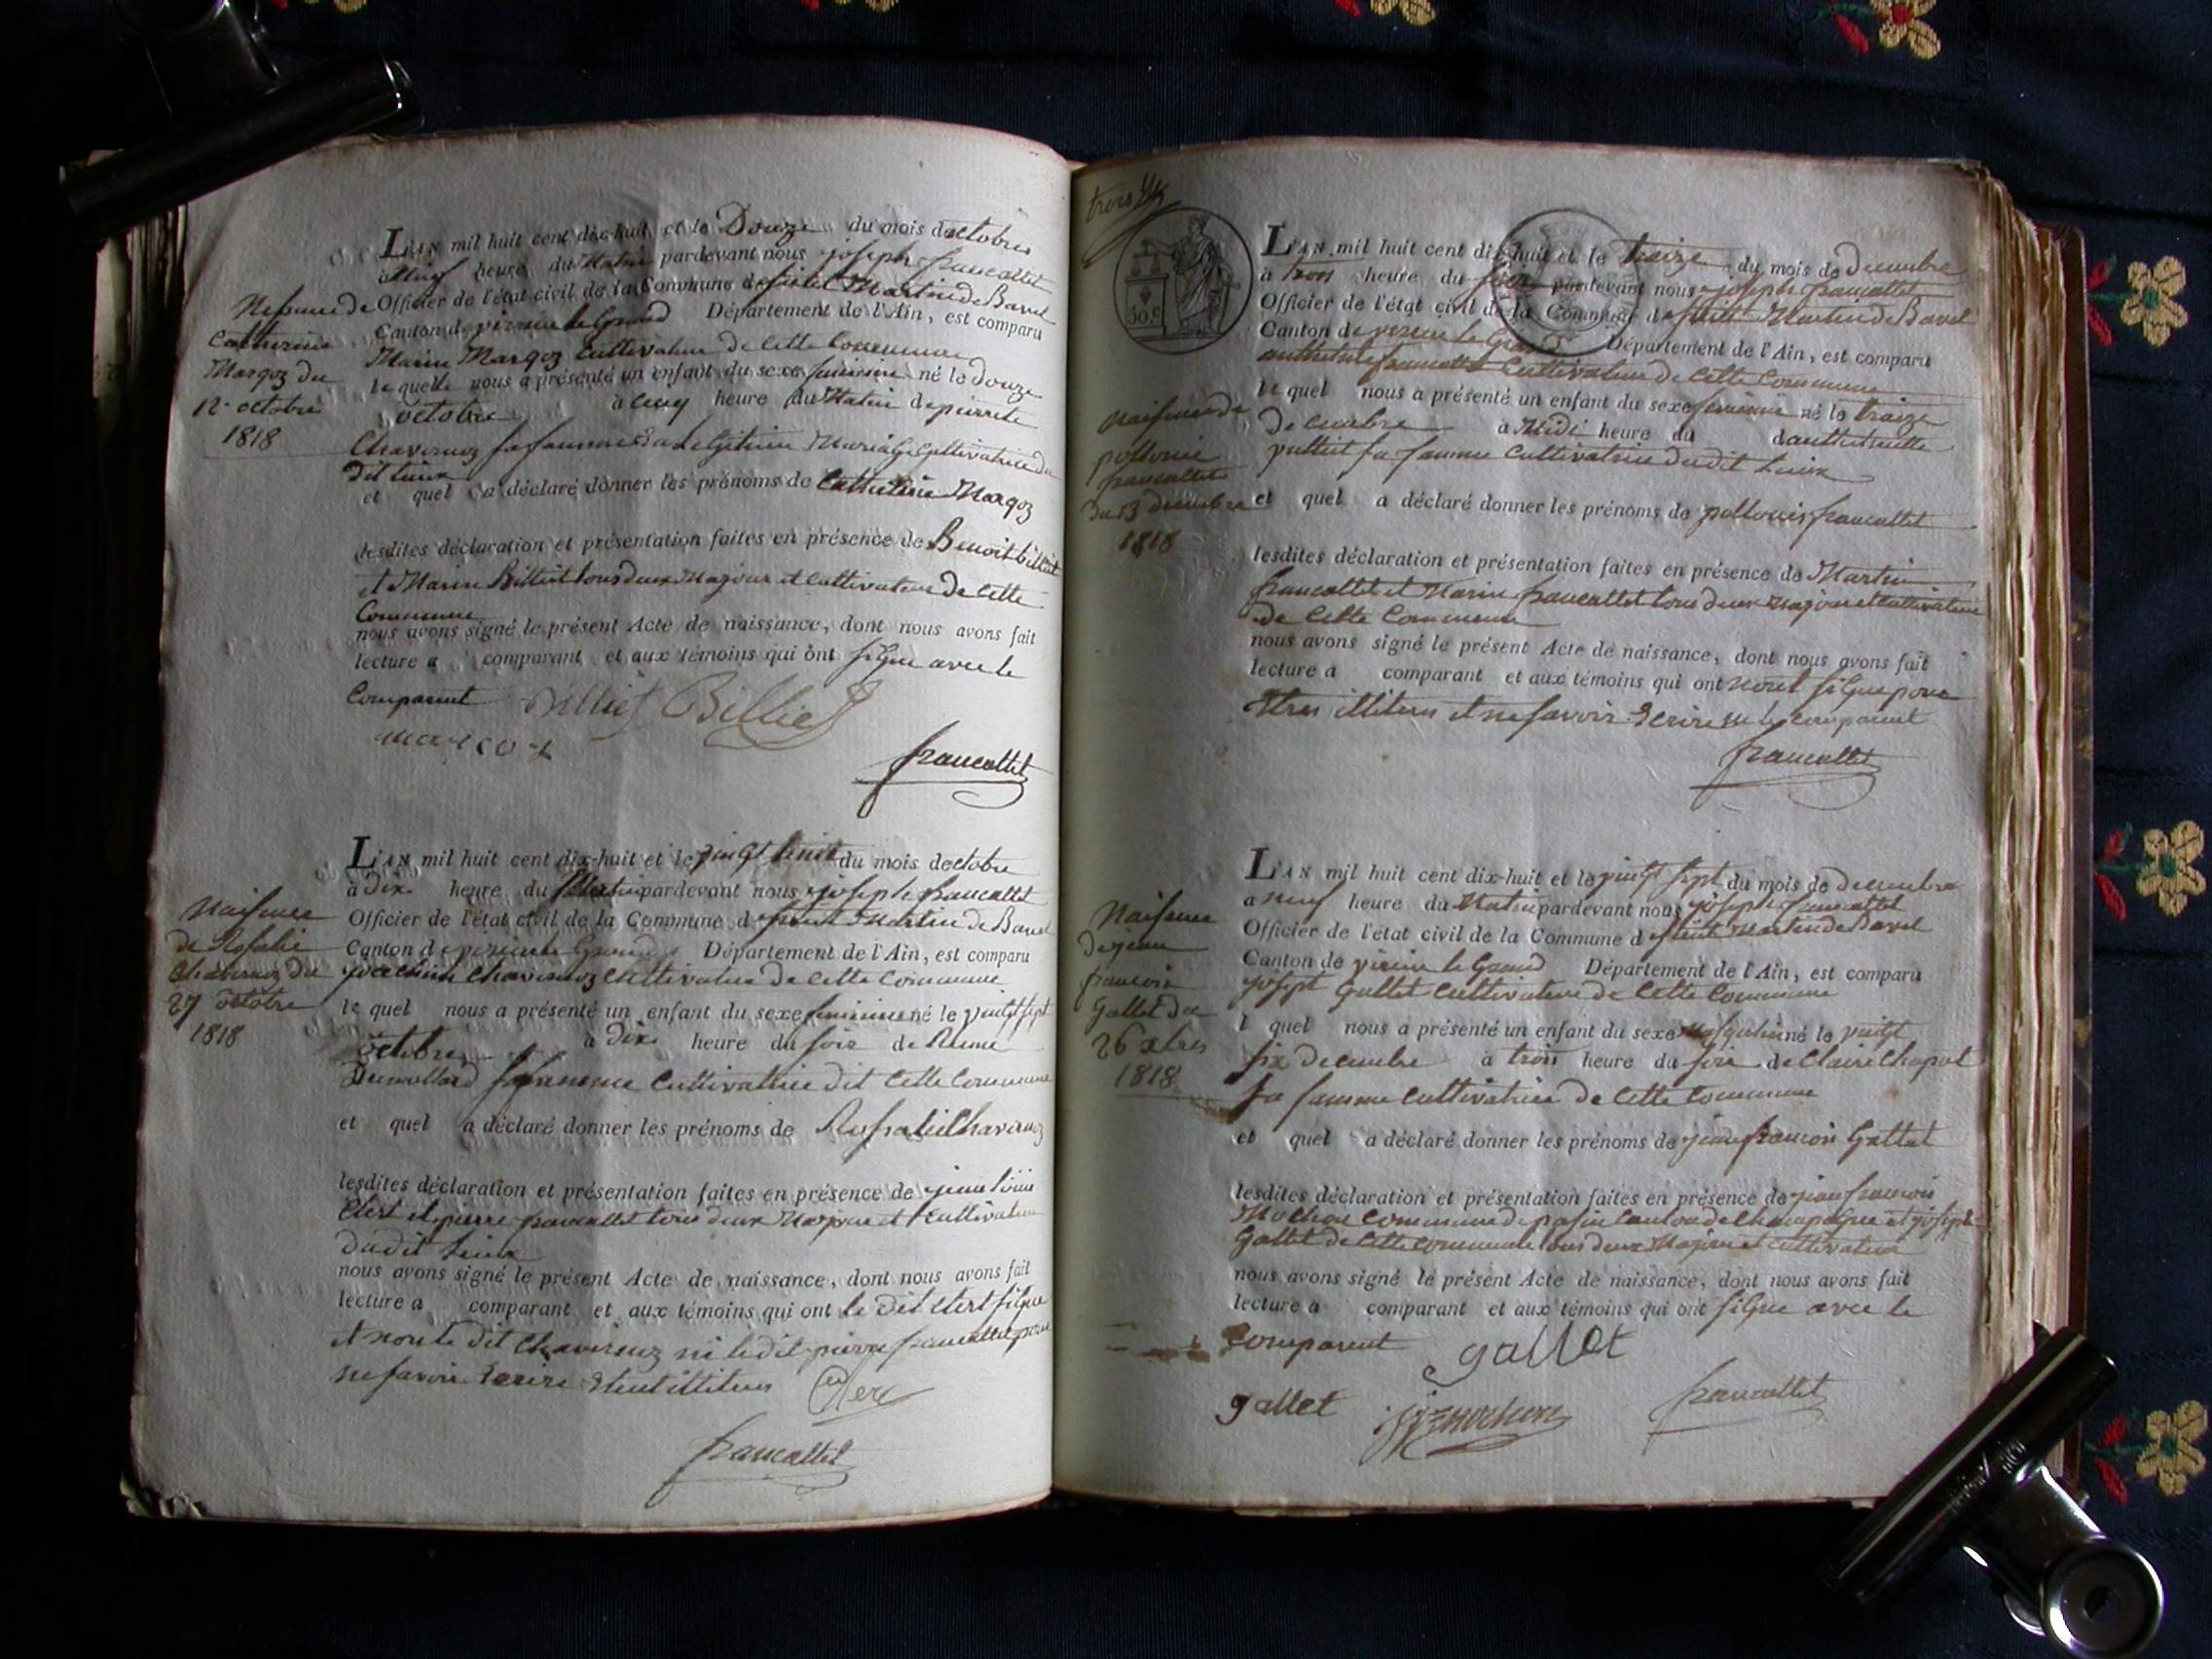 L'AN mil huit cent dix-huit et le Douze du mois doctobre
à Neuf heure du Matin pardevant nous joseph francallet
Officier de l'état civil de la Commune de saint Martin de Bavel
Canton de virieu le Grand Département de l'Ain, est comparu
Marin Margoz Cultivateur de Cette Commune
le quelle nous a présenté un enfant du sexe feminin né le douze
octobre à cinq heure du Matin de pierrete
Chavernoz sa famme Cultivatrice du
dit Lieux
et quel a déclaré donner les prénoms de Catherine Margoz
lesdites déclaration et présentation faites en présence de Benoit billiet
et Marin Billiet tous deux Majeur et Cultivateur de Cette
Commune
nous avons signé le présent Acte de naissance, dont nous avons fait
lecture a comparant et aux témoins qui ont signe avec le
Comparent Billiet Billiet
francallet
de
Catherine
Margoz du
12 octobre
1818
L'AN mil huit cent dix-huit et le vingt huit du mois doctobre
à Dix heure du Matin pardevant nous joseph francallet
Officier de l'état civil de la Commune d saint Martin de Bavel
Canton de virieu le Grand Département de l'Ain, est comparu
joachim Chavernoz cultivateur de Cette Commune
le quel nous a présenté un enfant du sexe feminin né le vingt sept
octobre à Dix heure du soir de
Dumollard sa famme Cultivatrice dit Cette Commune
et quel a déclaré donner les prénoms de Rosalie Chavernoz
lesdites déclaration et présentation faites en présence de jean
Clert et pierre francallet tous deux Majeur et Cultivateur
dudit Lieux
nous avons signé le présent Acte de naissance, dont nous avons fait
lecture a comparant et aux témoins qui ont le dit Clert signe
et non le dit Chavernoz ni le dit pierre francallet pour
ne savoir Ecrire Etant illiteres Clerc
francallet
Naissance
de Rosalie
Chavernoz du
27 octobre
1818
trois
50.c
L'AN mil huit cent dix-huit et le treize du mois de Decembre
à trois heure du soir pardevant nous joseph francallet
Officier de l'état civil de la Commune d saint Martin de Bavel
Canton de virieu le Grand Département de l'Ain, est comparu
anthelme francallet Cultivateur de Cette Commune
le quel nous a présenté un enfant du sexe feminin né le traize
Decembre à Midi heure du danthelmette
sa famme Cultivatrice dudit Lieux
et quel a déclaré donner les prénoms de pollonie francallet
lesdites déclaration et présentation faites en présence de Martin
francallet et Marin francallet tous deux Majeur et Cultivateur
de Cette Commune
nous avons signé le présent Acte de naissance, dont nous avons fait
lecture a comparant et aux témoins qui ont nont signe pour
Etres illiteres et ne savoir Ecrire ni le comparent
francallet
Naissance de
pollonie
francallet
du 13 decembre
1818
L'AN mil huit cent dix-huit et le vingt sept du mois de Decembre
a neuf heure du Matin pardevant nous joseph francallet
Officier de l'état civil de la Commune d saint Martin de Bavel
Canton de virieu le Grand Département de l'Ain, est comparu
joseph Gallet Cultivateur de Cette Commune
l quel nous a présenté un enfant du sexe Masqulin né le vingt
six Decembre à trois heure du soir de Claire Chapot
sa famme Cultivatrice de Cette Commune
et quel a déclaré donner les prénoms de jean francois Gallet
lesdites déclaration et présentation faites en présence de jean francois
Mochon Commune de Canton de Champagne et joseph
Gallet de Cette Commune tous deux Majeur et cultivateur
nous avons signé le présent Acte de naissance, dont nous avons fait
lecture a comparant et aux témoins qui ont signe avec le
Comparent gallet
gallet mochon francallet
Naissance
de jean
francois
Gallet du
26 xbres
1818